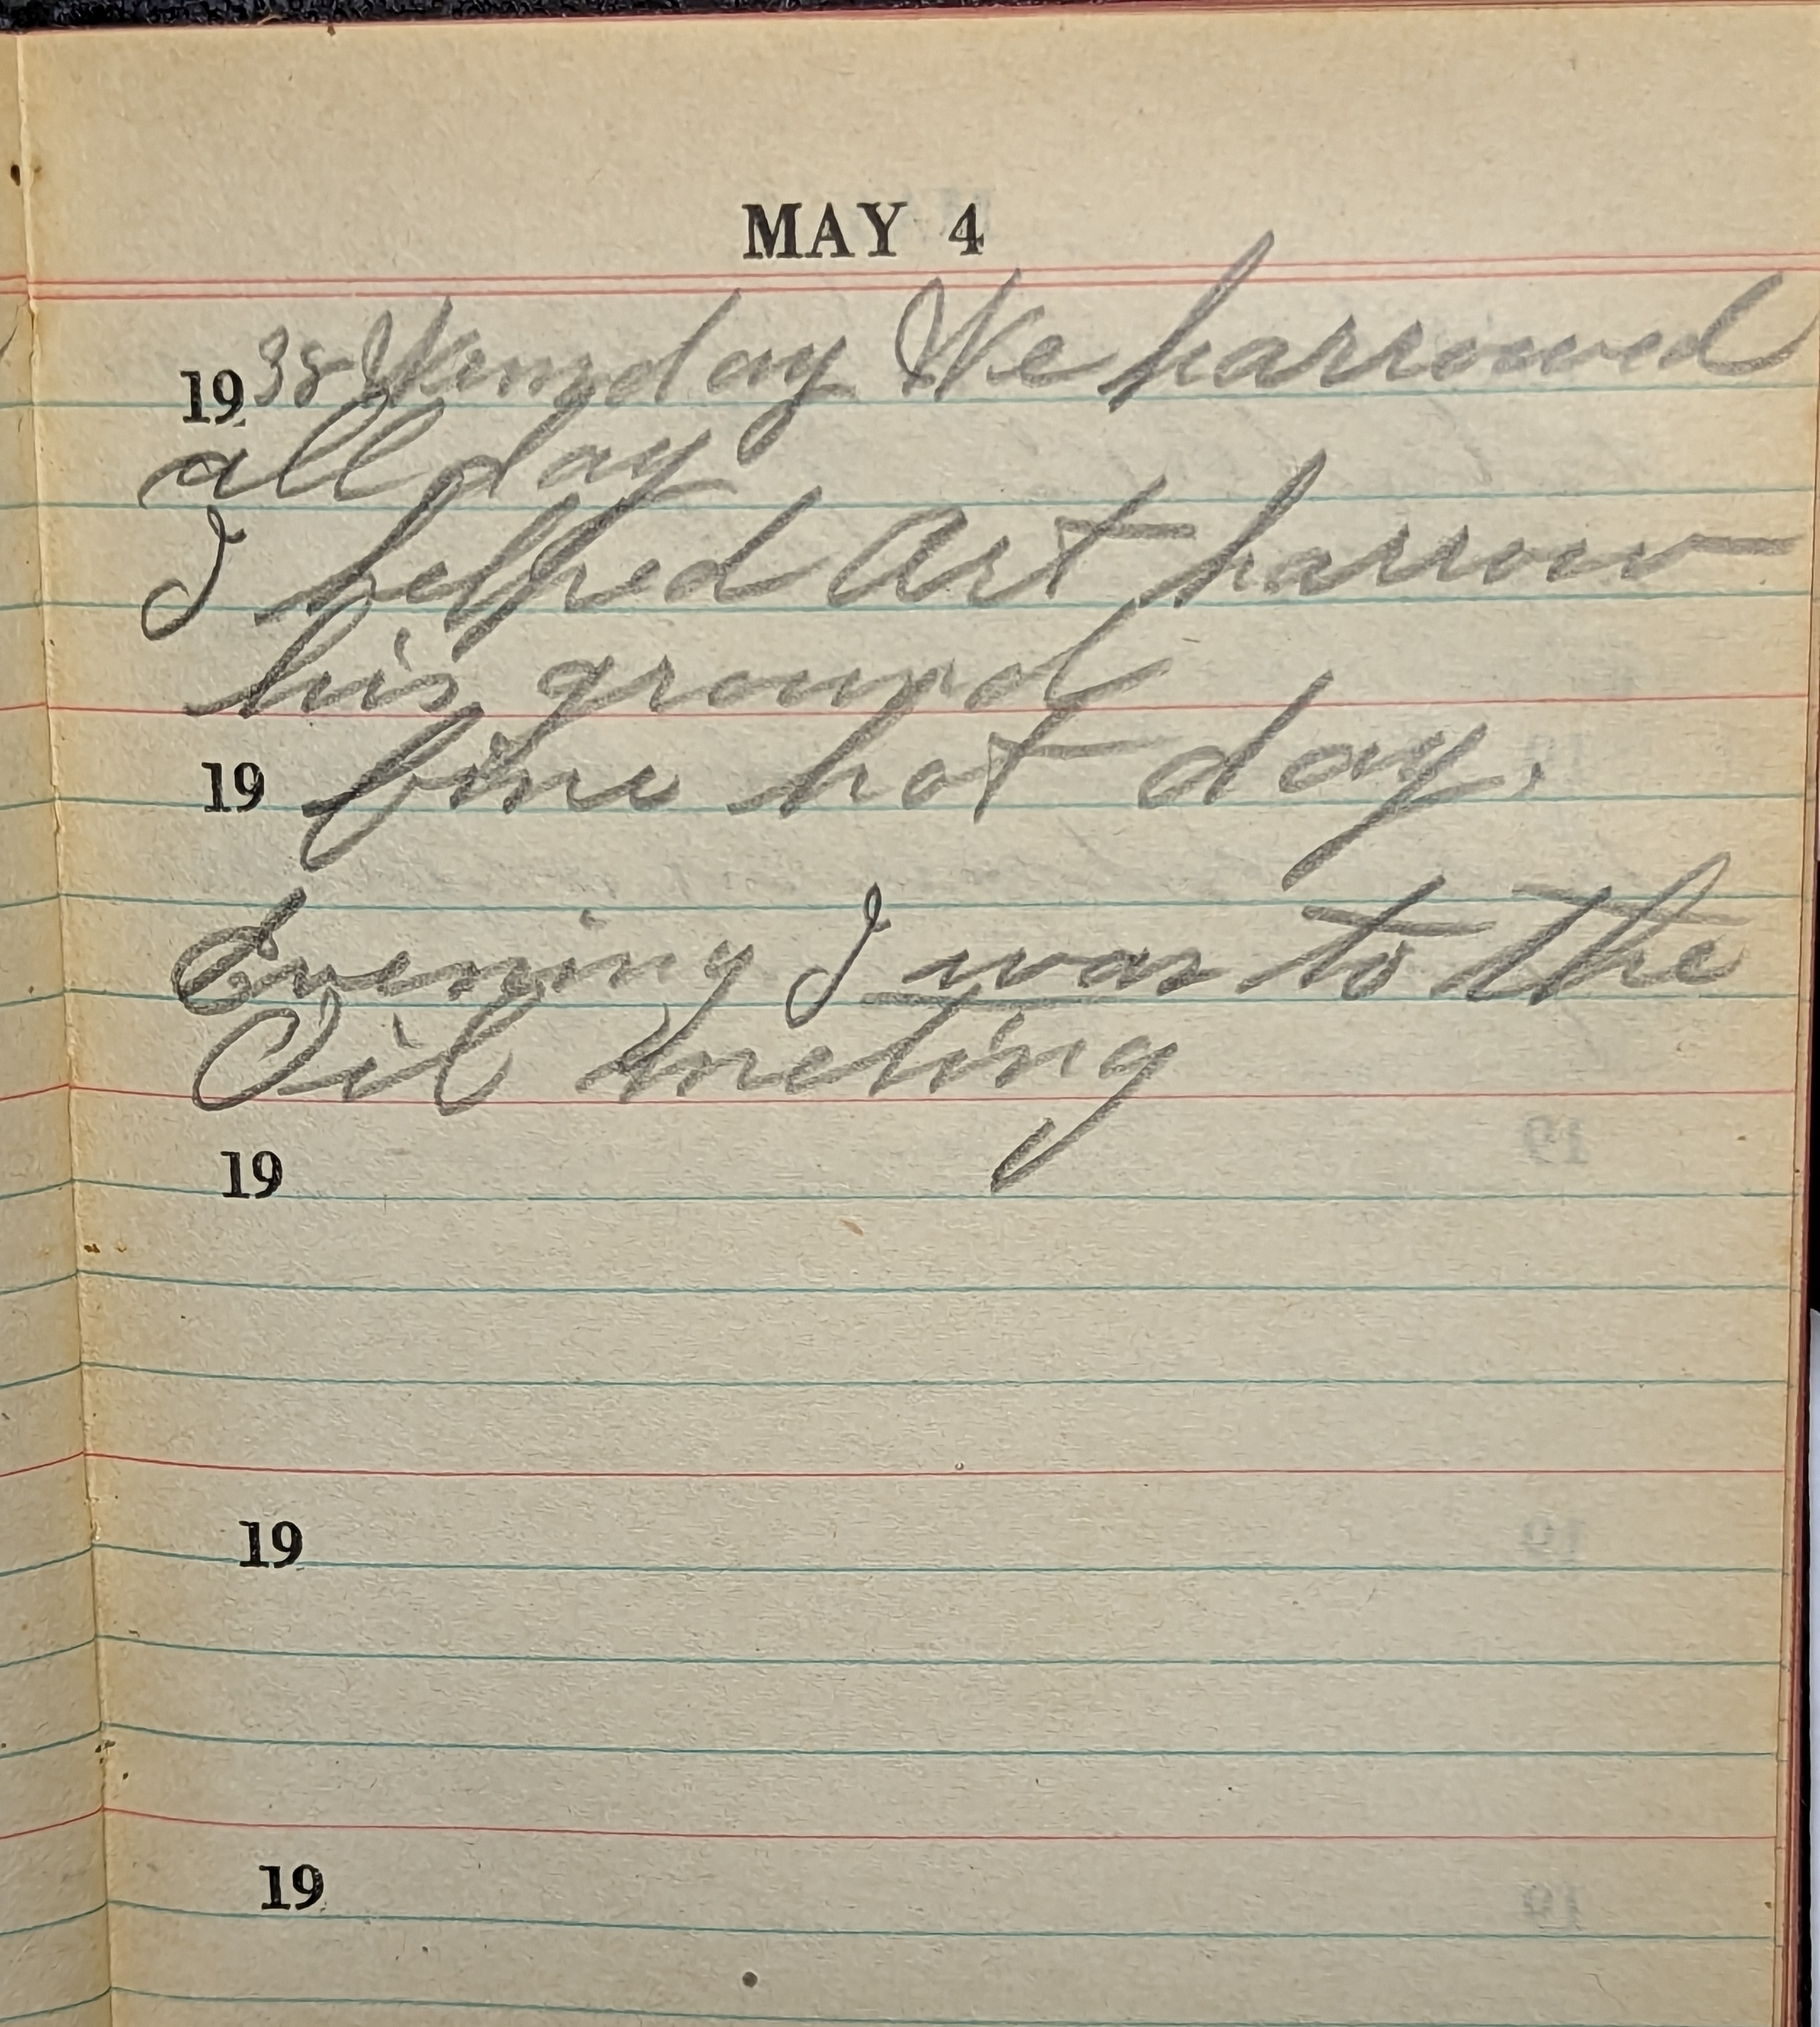 MAY 4
1938 Wensday We harrowed
all day
I helped Art harrow
his ground
19 fine hot day.
Evening I was to the
Oil meting
19
19
19